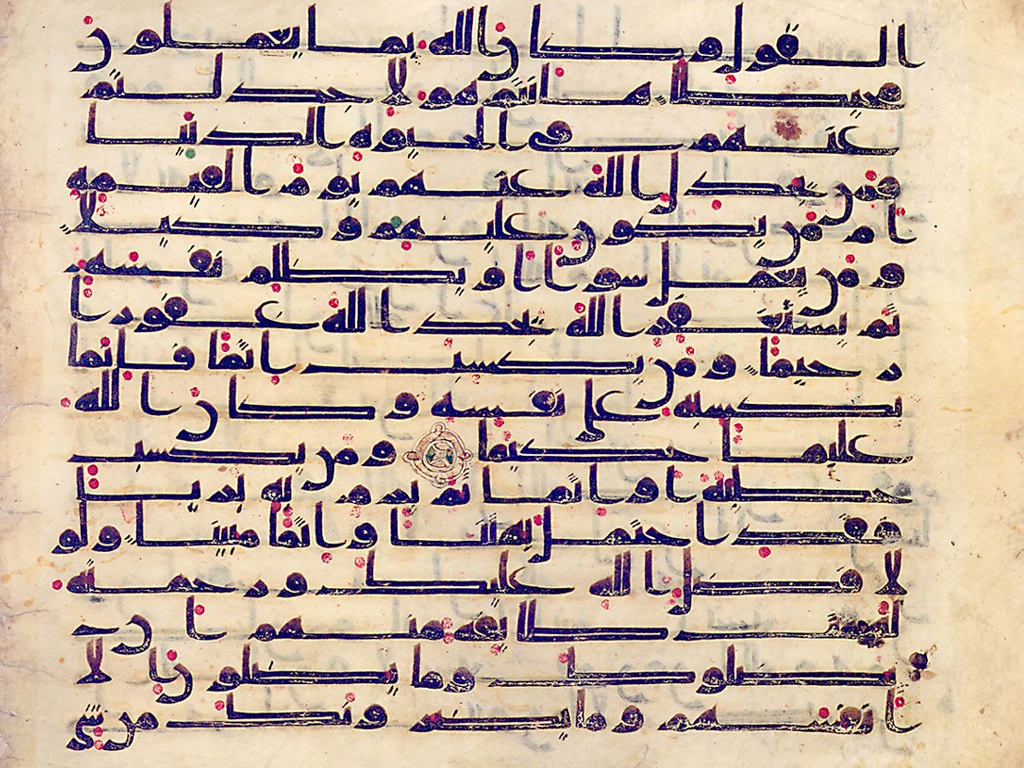 القول وكان الله بما يعملون
محيطا هانتم هولا جدلتم
عنهم في الحيوة الدنيا
فمن يجدل الله عنهم يوم القيمة
ام من يكون عليهم وكيلا
ومن يعمل سوا او يظلم نفسه
ثم يستغفر الله يجد الله غفورا
رحيما ومن يكسب اثما فانما
يكسبه على نفسه وكان الله
عليما حكيما ومن يكسب
خطية او اثما ثم يرم به بريا
فقد احتمل بهتنا واثما مبينا ولو
لا فضل الله عليك ورحمته
لهمت طايفة منهم ان
يضلوك وما يضلون الا
انفسهم وما يضرونك من شي